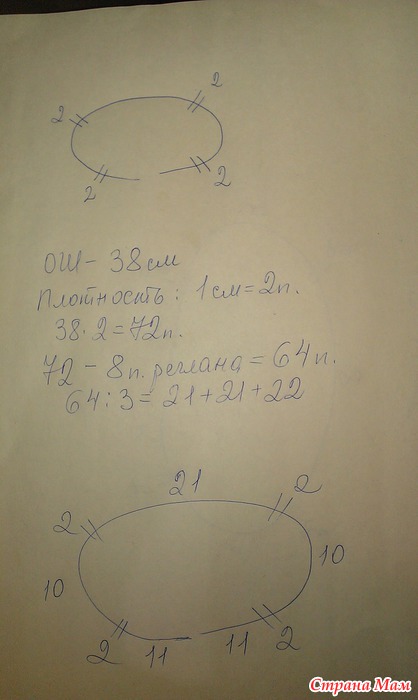 2
2
2
2
ОШ - 38 см
Плотность: 1 см = 2п.
38 · 2 = 72п.
72 - 8п. реглана = 64п.
64 : 3 = 21 + 21 + 22
21
2
2
10
10
2
11
11
2
Страна Мам